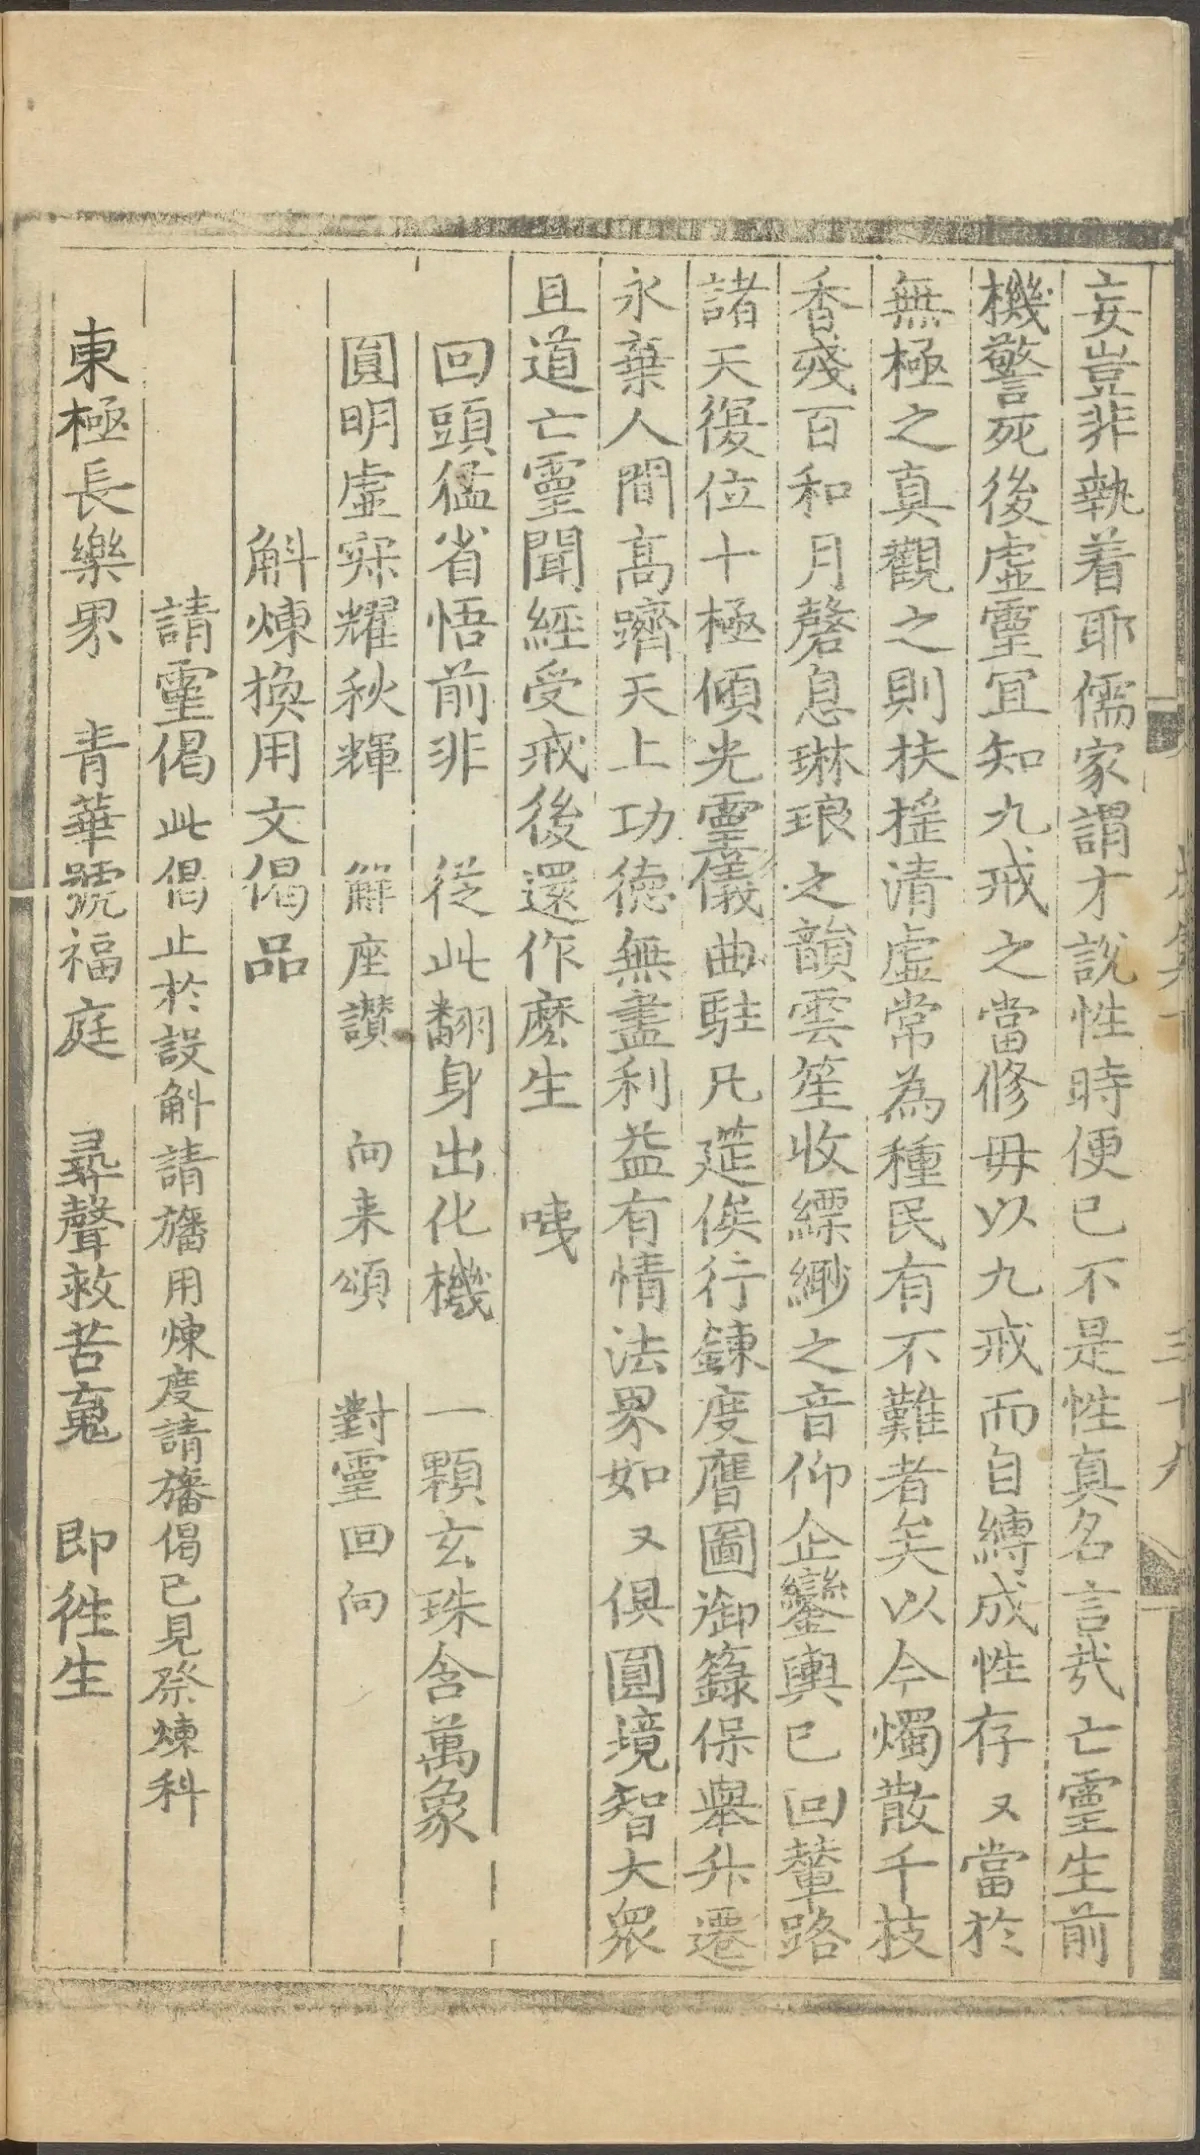 三十九
妄豈非執着耶儒家謂才說性時便已不是性真名言哉亡靈生前
機警死後虛靈宜知九戒之當修毋以九戒而自縛成性存又當於
無極之真觀之則扶搖清虛常為種民有不難者矣以今燭散千枝
香殘百和月磬息琳琅之韻雲笙收縹緲之音仰企鑾輿已回輦路
諸天復位十極傾光靈儀曲駐凡筵俟行鍊度膺圖御籙保舉升遷
永棄人間高躋天上功德無盡利益有情法界如又俱圓境智大眾
且道亡靈聞經受戒後還作麽生　咦
回頭猛省悟前非　從此翻身出化機　一顆玄珠含萬象
圓明虛寂耀秋輝　解座讃　向来頌　對靈回向
斛煉換用文偈品
請靈偈此偈止於設斛請旛用煉度請旛偈已見祭煉科
東極長樂界　青華號福庭　尋聲救苦䰟　即徃生